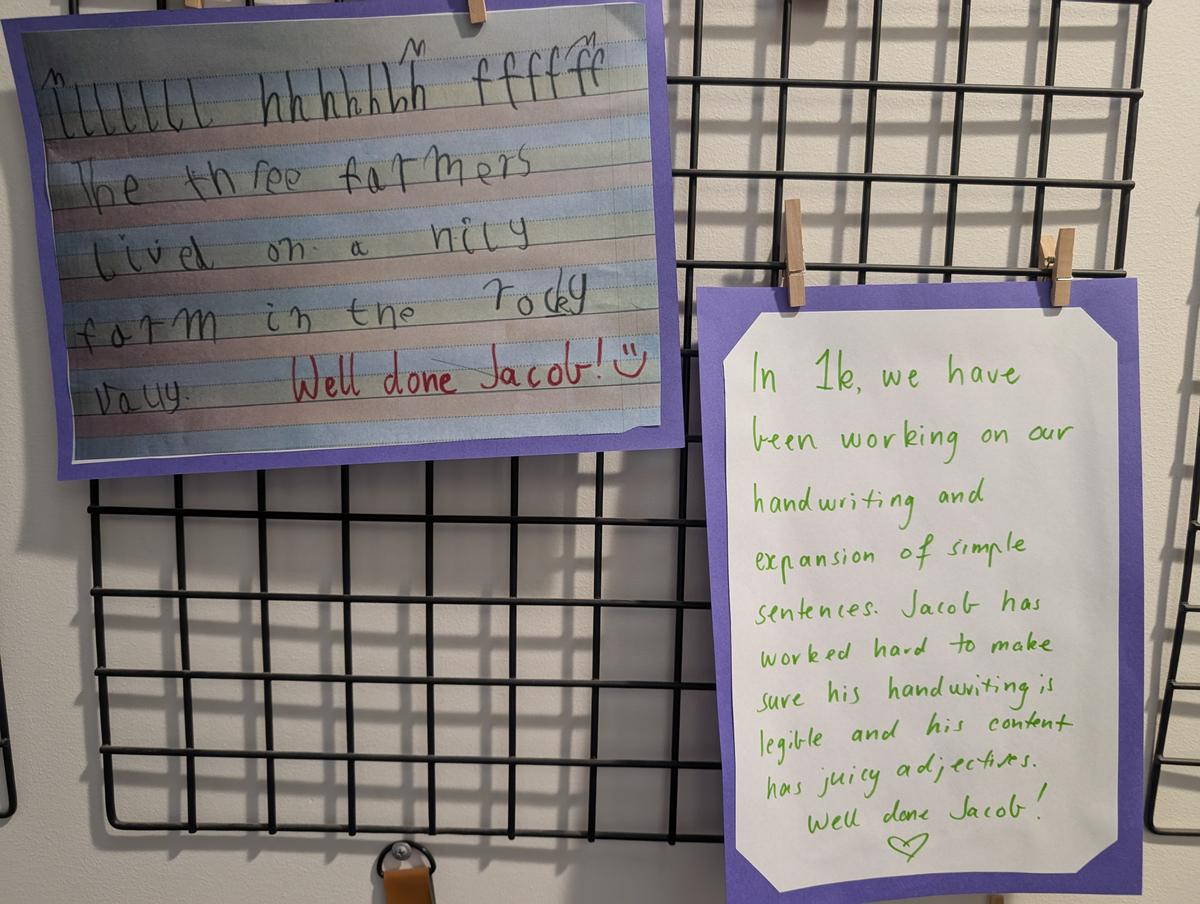 lllllll hhhhhhh ffffff
The three farmers
lived on a hily
farm in the rocky
vally. Well done Jacob!
In 1k, we have
been working on our
handwriting and
expansion of simple
sentences. Jacob has
worked hard to make
sure his handwriting is
legible and his content
has juicy adjectives.
Well done Jacob!